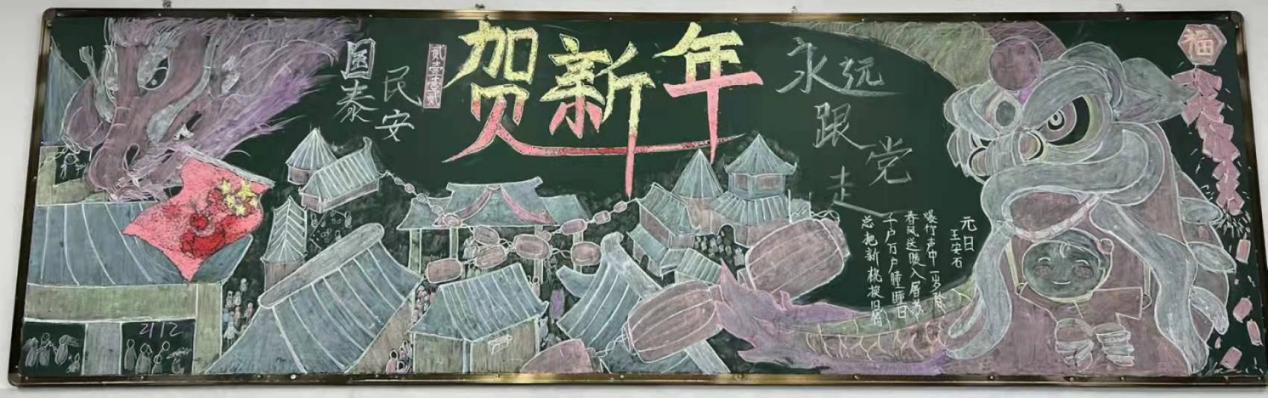 国泰
民安
贺新年
永远
跟党
走
福
元日
王安石
爆竹声中一岁除
春风送暖入屠苏
千户万户曈曈日
总把新桃换旧符
2112